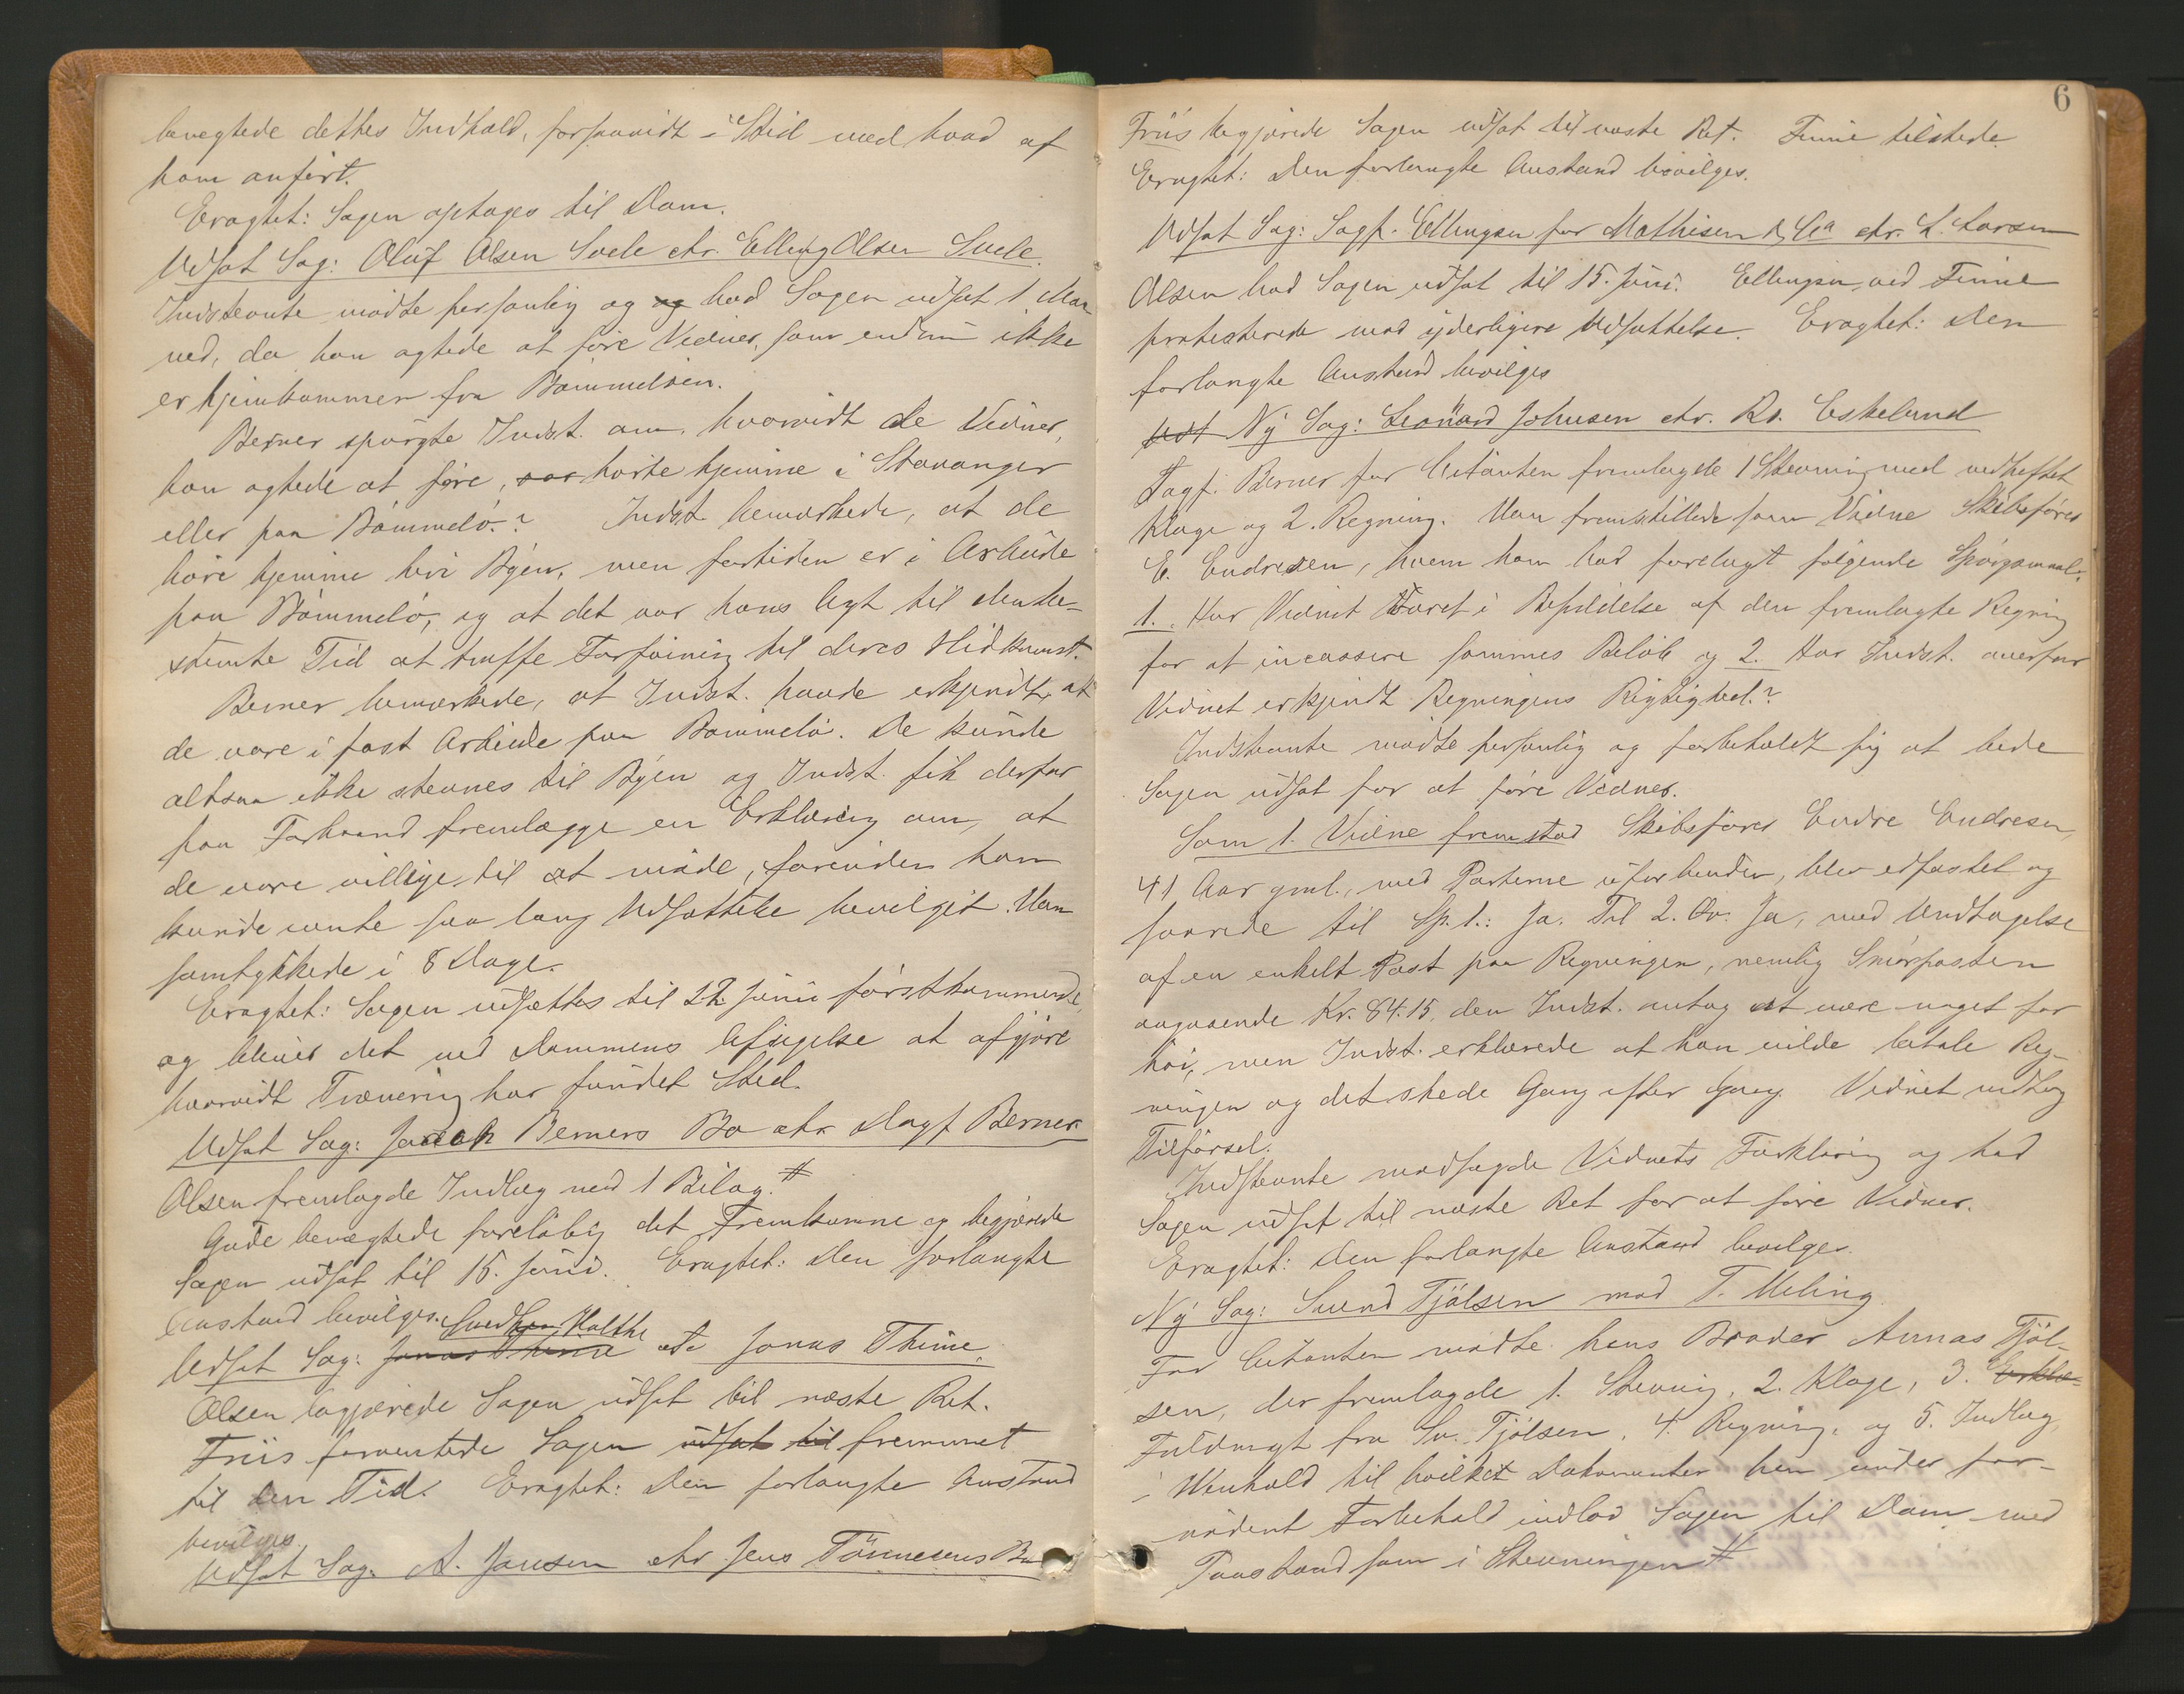 benegtede dettes Indhold, forsaavidt i Strid med hvad af
ham anført.
Eragtet: Sagen optages til Dom.
Udsat Sag: Oluf Olsen Svele ctr. Elling Olsen Svele.
Indstevnte mødte personlig og og bad Sagen udsat 1 Maa
ned, da han agtede at føre Vidner, som endnu ikke
er hjemkommen fra Bømmeløen.
Berner spurgte Indst. om, hvorvidt de Vidner,
han agtede at føre, var hørte hjemme i Stavanger
eller paa Bømmelø? Indst. bemærkede, at de
høre hjemme her i Byen, men fortiden er i Arbeide
paa Bømmelø, og at det var hans Agt til den be-
stemte Tid at træffe Forføining til deres Hidkomst.
Berner bemærkede, at Indst. havde erkjendt, at
de vare i fast Arbeide paa Bømmelø. De kunde
altsaa ikke stevnes til Byen og Indst. fik derfor
paa Forhaand fremlægge en Erklæring om, at
de vare villige til at møde, forinden han
kunde vente saa lang Udsættelse bevilget. Han
samtykkede i 8 Dage.
Eragtet: Sagen udsættes til 22 Juni førstkommende,
og bliver det ved Dommens Afsigelse at afgjøre
hvorvidt Trænering har fundet Sted.
Udsat Sag: Jacob Berners Bo ctr. Dagf. Berner
Olsen fremlagde Indlæg med 1 Bilag. #
Gude benægtede foreløbig det Fremkomne og begjærede
Sagen udsat til 15. Juni. Eragtet: Den forlangte
Anstand bevilges.
Udsat Sag: Jonas Thime Holthe ctr. Jonas Thime.
Olsen begjærede Sagen udsat til næste Ret.
Friis forventede Sagen udsat til fremmet
til den Tid. Eragtet: Den forlangte Anstand
bevilges.
Udsat Sag: A. Jansen ctr. Jens Tönnesens Bo
6
Friis begjærede Sagen udsat til næste Ret. Finne tilstede.
Eragtet: Den forlangte Anstand bevilges.
Udsat Sag: Sagf. Ellingsen for Mathisen & Co ctr. L. Larsen
Olsen bad Sagen udsat til 15. Juni. Ellingsen ved Finne
protesterede mod yderligere Udsættelse. Eragtet: Den
forlangte Anstand bevilges
Uds Ny Sag: Leonard Johnsen ctr. Rs. Eskelund
Sagf. Berner for Citanten fremlagde 1 Stevning med vedheftet
Klage og 2. Regning. Han fremstillede som Vidne Skibsfører
E. Endresen, hvem han bad forelagt følgende Spørgsmaal:
1. Har Vidnet været i Besiddelse af den fremlagte Regning
for at incassere sammes Beløb og 2. Har Indst. overfor
Vidnet erkjendt Regningens Rigtighed?
Indstevnte mødte personlig og forbeholdt sig at bede
Sagen udsat for at føre Vidner.
Som 1. Vidne fremstod Skibsfører Endre Endresen,
41 Aar gml., med Parterne uforbunden, blev edfæstet og
svarede til Sp. 1.: Ja. Til 2. Sv. Ja, med Undtagelse
af en enkelt Post paa Regningen, nemlig Smørposten
angaaende Kr. 84.15, den Indst. antog at være noget for
høi, men Indst. erklærede at han vilde betale Reg-
ningen og det skede Gang efter Gang. Vidnet vedtog
Tilførsel.
Indstevnte modsagde Vidnets Forklaring og bad
Sagen udsat til næste Ret for at føre Vidner.
Eragtet: Den forlangte Anstand bevilges.
Ny Sag: Svend Tjölsen mod T. Meling
For Citanten mødte hans Broder Annas Tjöl-
sen, der fremlagde 1. Stevning, 2. Klage, 3. Erklæ-
Fuldmagt fra Sv. Tjölsen, 4. Regning, og 5. Indlæg,
i Henhold til hvilket Dokumenter han under for-
nødent Forbehold indlod Sagen til Dom med
Paastand som i Stevningen #